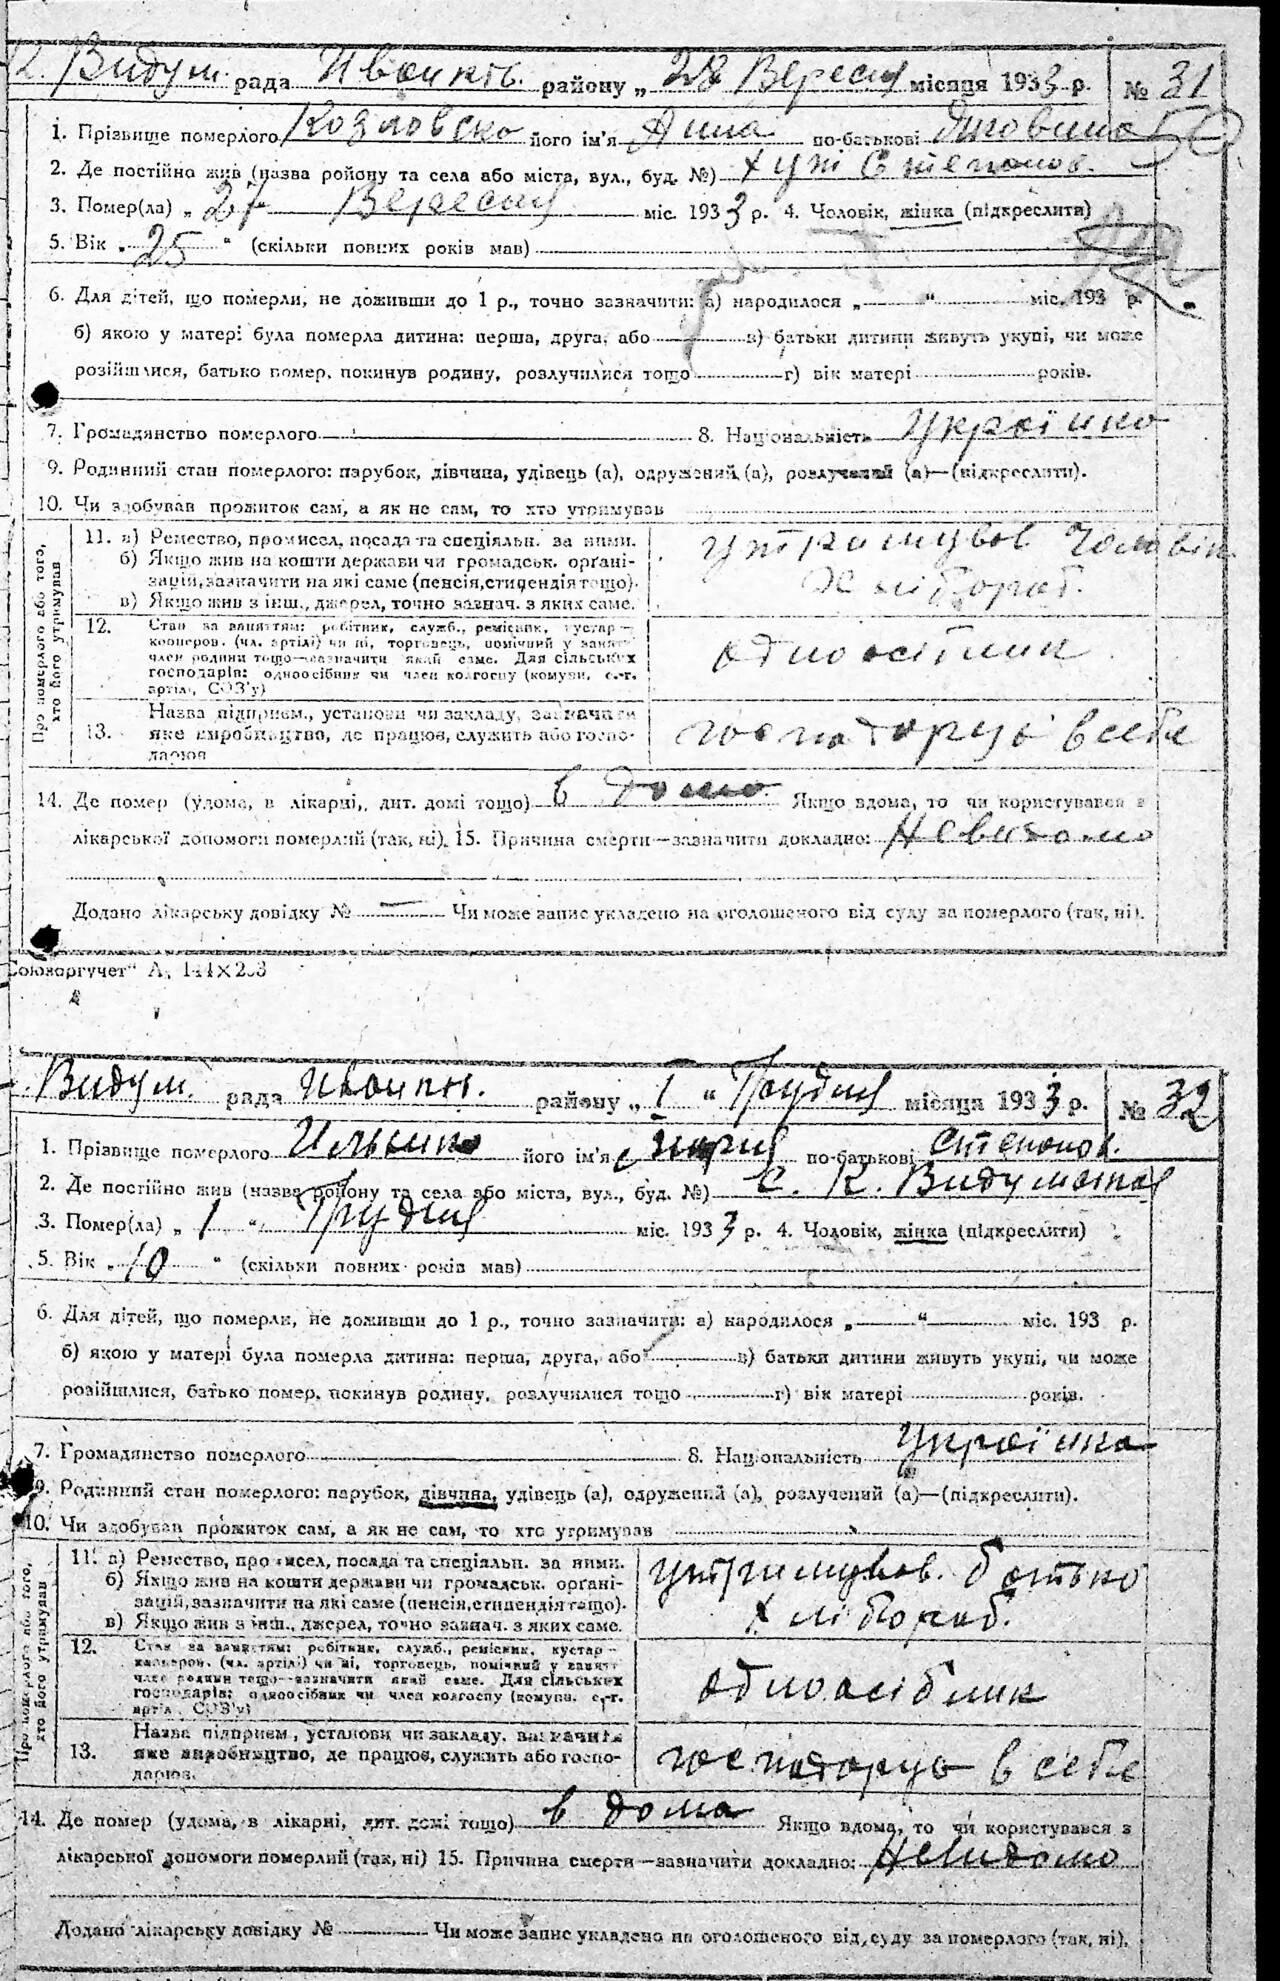 К. Видум. рада Иваикв. району „ 28 Вересня місяця 1933 р. № 31
1. Прізвище померлого Козловско його ім'я Анна по-батькові
50
2. Де постійно жив (назва ройону та села або міста, вул., буд. №) хут Степанов.
3. Помер(ла) „ 27 Вересня міс. 1933 р. 4. Чоловік, жінка (підкреслити)
5. Вік „ 25 “ (скільки повних років мав)
6. Для дітей, що померли, не доживши до 1 р., точно зазначити: а) народилося „ “ міс. 193 р.
б) якою у матері була померла дитина: перша, друга, або в) батьки дитини живуть укупі, чи може
розійшлися, батько помер, покинув родину, розлучилися тощо г) вік матері років.
7. Громадянство померлого 8. Національність Українка
9. Родинний стан померлого: парубок, дівчина, удівець (а), одружений (а), розлучений (а)—(підкреслити).
10. Чи здобував прожиток сам, а як не сам, то хто утримував
Про померлого або того, хто його утримував
11. а) Ремество, промисел, посада та спеціяльн. за ними. утримував Чоловік
б) Якщо жив на кошти держави чи громадськ. орґані- Хлібороб.
зацій, зазначити на які саме (пенсія, стипендія тощо).
в) Якщо жив з інш., джерел, точно зазнач. з яких саме.
12. Стан за заняттям: робітник, служб., ремісник, кустар—
кооперов. (чл. артілі) чи ні, торговець, помічний у занят.
член родини тощо—зазначити який саме. Для сільських одноосібник
господарів: одноосібник чи член колгоспу (комуни, с.-г.
артілі, СОЗ'у)
13. Назва підприєм., установи чи закладу, зазначити
яке виробництво, де працюв, служить або госпо- господорує в себе
дарюв
14. Де помер (удома, в лікарні, дит. домі тощо) в дома Якщо вдома, то чи користувався з
лікарської допомоги померлий (так, ні). 15. Причина смерти—зазначити докладно: Невидомо
Додано лікарську довідку № — Чи може запис укладено на оголошеного від суду за померлого (так, ні).
Союзоргучет“ А, 144×203
Видум. рада району „ 1 “ Грудня місяця 1933 р. № 32
1. Прізвище померлого його ім'я Марія по-батькові Степанов.
2. Де постійно жив (назва ройону та села або міста, вул., буд. №) С. К. Видумана
3. Помер(ла) „ 1 “ Грудня міс. 1933 р. 4. Чоловік, жінка (підкреслити)
5. Вік „ 10 “ (скільки повних років мав)
6. Для дітей, що померли, не доживши до 1 р., точно зазначити: а) народилося „ “ міс. 193 р.
б) якою у матері була померла дитина: перша, друга, або в) батьки дитини живуть укупі, чи може
розійшлися, батько помер, покинув родину, розлучилися тощо г) вік матері років.
7. Громадянство померлого 8. Національність Українка
9. Родинний стан померлого: парубок, дівчина, удівець (а), одружений (а), розлучений (а)—(підкреслити).
10. Чи здобував прожиток сам, а як не сам, то хто утримував
Про померлого або того, хто його утримував
11. а) Ремество, промисел, посада та спеціяльн. за ними. утримував. батько
б) Якщо жив на кошти держави чи громадськ. орґані- Хлібороб.
зацій, зазначити на які саме (пенсія, стипендія тощо).
в) Якщо жив з інш., джерел, точно зазнач. з яких саме.
12. Стан за заняттям: робітник, служб., ремісник, кустар—
кооперов. (чл. артілі) чи ні, торговець, помічний у занят.
член родини тощо—зазначити який саме. Для сільських одноосібник
господарів: одноосібник чи член колгоспу (комуни, с.-г.
артіл, СОЗ'у)
13. Назва підприєм., установи чи закладу, зазначити
яке виробництво, де працює, служить або госпо- господорує в себе
дарюв.
14. Де помер (удома, в лікарні, дит. домі тощо) в дома Якщо вдома, то чи користувався з
лікарської допомоги померлий (так, ні) 15. Причина смерти—зазначити докладно: Невидомо
Додано лікарську довідку № Чи може запис укладено на оголошеного від суду за померлого (так, ні).